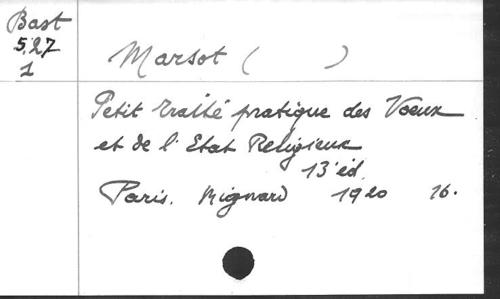 Bast
5,27
1
Marsot ( )
Petit traité pratique des Voeux
et de l'Etat Religieux
13 éd.
Paris. Mignard 1920 16.